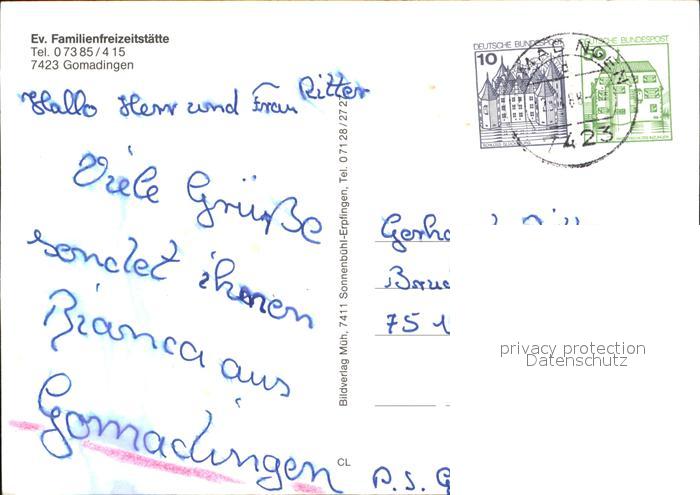 Ev. Familienfreizeitstätte
Tel. 0 73 85 / 4 15
7423 Gomadingen
Hallo Herr und Frau Ritter
Viele Grüße
sendet ihnen
Bianca aus
Gomadingen
Bildverlag Müh, 7411 Sonnenbühl-Erpfingen, Tel. 0 71 28 / 272
CL
DEUTSCHE BUNDESPOST
10
DEUTSCHE BUNDESPOST
7423
75
privacy protection
Datenschutz
P.S. G